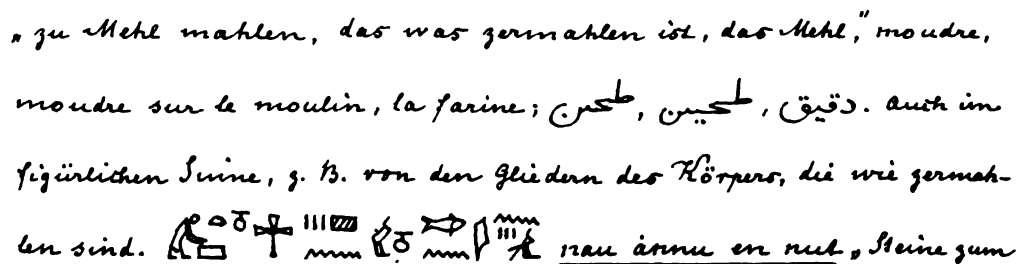 „zu Mehl mahlen, das was zermahlen ist, das Mehl,” moudre,
moudre sur le moulin, la farine; طحن, طحين, دقيق. Auch im
figürlichen Sinne, z. B. von den Gliedern des Körpers, die wie zermah-
len sind. nau ànnu en nut „Steine zum